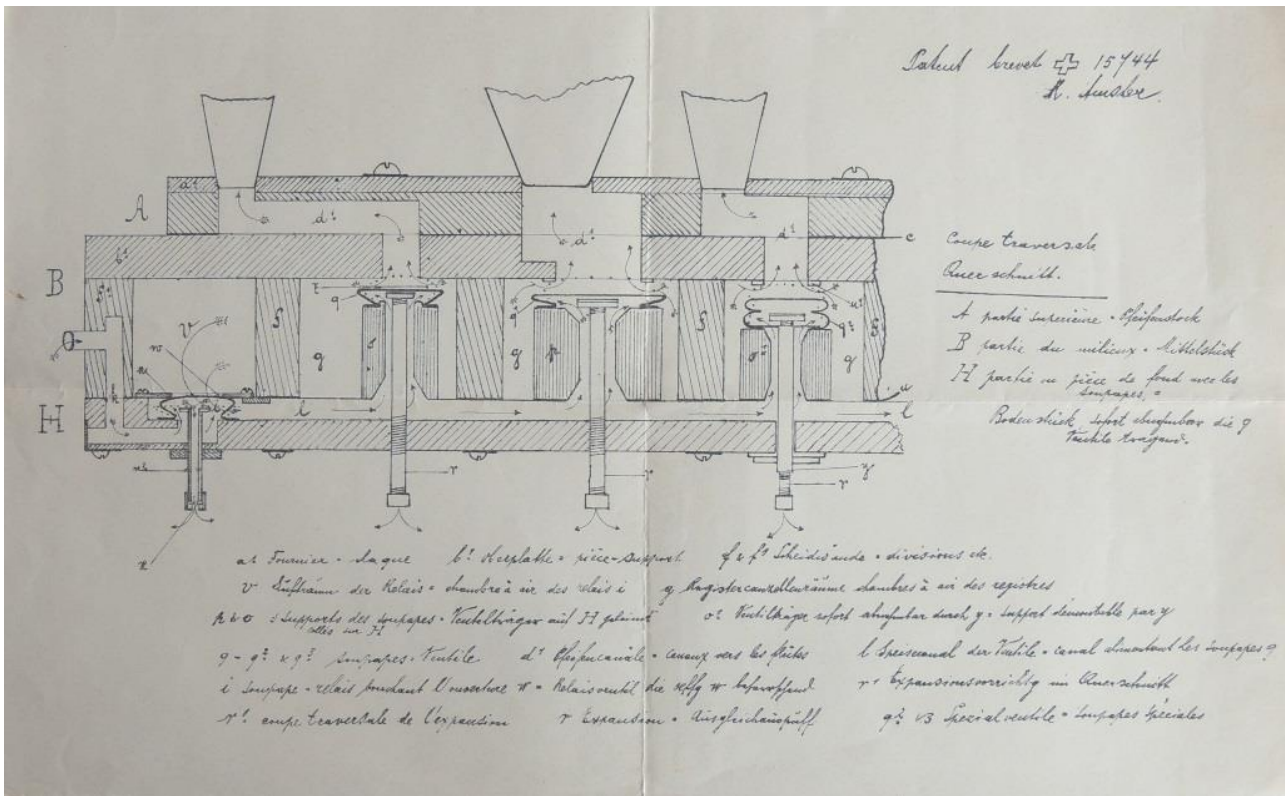 Patent brevet 15744
A. Amsler.
Coupe traversale
Querschnitt.
A partie superieure = Pfeifenstock
B partie du milieux = Mittelstück
H partie ou pièce de fond avec les
soupapes. =
Bodenstück sofort abnehmbar die q
Ventile tragend.
A
B
H
a¹
b¹
c
d¹
d¹
d¹
v
w
g
g
g
l
l
r
r
r
y
a¹ Fournier = laque b¹ = pièce-support f & f¹ Scheidwände = divisions
v Luftraum der Relais = chambre à air des relais i g Registercanzellenräume chambres à air des registres
& o = supports des soupapes = Ventilträger auf H geleimt o² Ventilträger sofort abnehmbar durch y = support démontable par y
collés sur H
q - q² & q³ soupapes = Ventile d¹ Pfeifencanäle = canaux vers les flûtes l Speisecanal der Ventile = canal alimentant les soupapes q
i soupape - relais bouchant l'ouverture = Relaisventil die r¹ Expansionsvorrichtg im Querschnitt
r¹ coupe traversale de l'expansion r Expansion = q² Spezialventile = soupapes spéciales